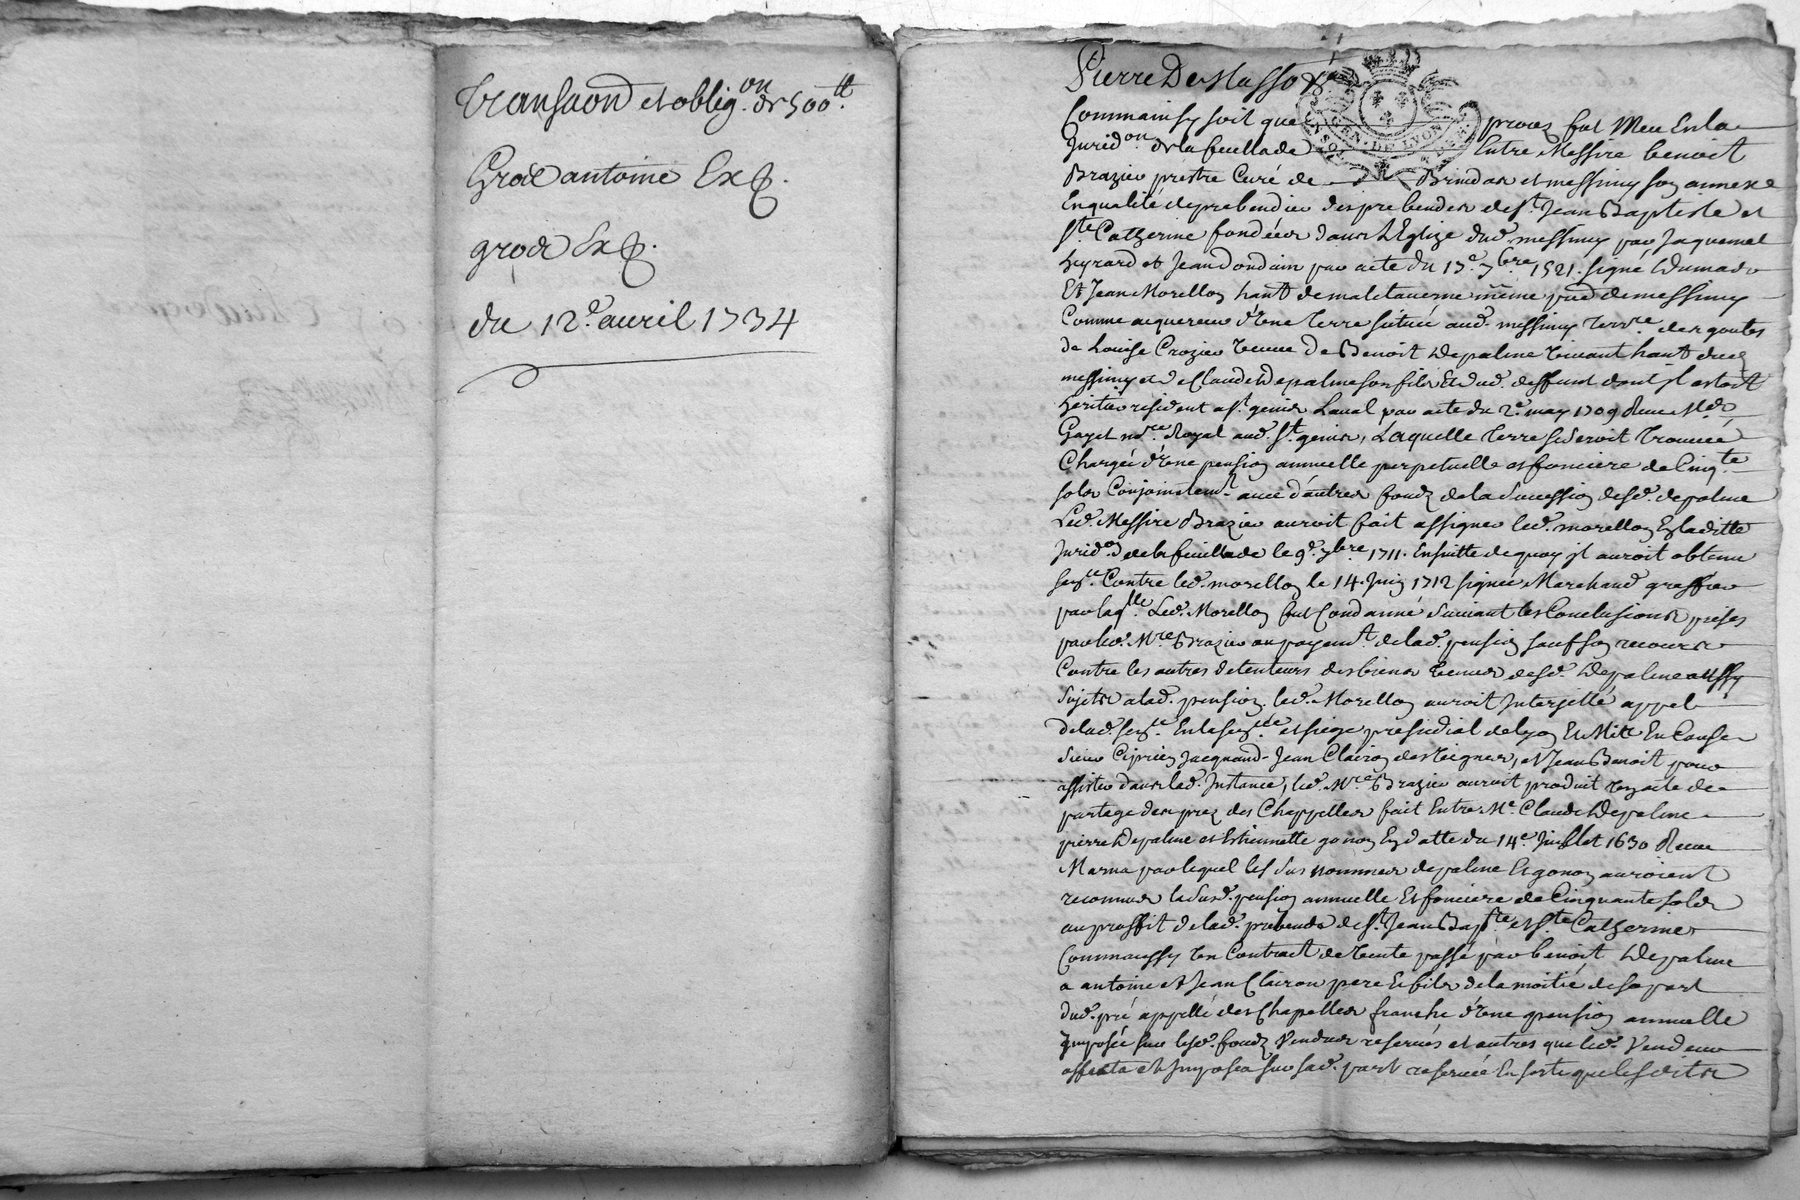 Transaon et oblig.on de 500tt.
Gros antoine Exp.
grosse Exp.
du 12e. auril 1734
Pierre De Masso
GEN. DE LYON
Comme ainsy soit que procez fut Meu En la
Jurid.on de la feuillade Entre Messire benoit
Brazier prestre Curé de Brindas et messimy son annexe
En qualité de prebendier des prebendes de St. Jean Baptiste et
Ste. Catherine fondées dans L'Eglize dud. messimy par Jaquemet
et Jean Dondain par acte du 17e. 7bre. 1521. signé Dumas
Et Jean Morellon hant. de maletauerne même par.se de messimy
Comme acquereur d'Une Terre située aud. messimy Terr.re des goutes
de Louise Crozier veuue De Benoit Depalme viuant hant. dud.
messimy et de Claude Depalme son fils Et dud. deffunt dont jl estoit
heritier resident a St. genis Laual par acte du 2e. may 1709 Receu Me.
Gayet no.re Royal aud. St. genis, Laquelle Terre se seroit Trouuée
Chargée d'Une pension annuelle perpetuelle et fonciere de Cinq.te
sols Conjointem.t auec d'autres fondz de la Succession desd. depalme
Led. Messire Brazier auroit fait assigner led. morellon En laditte
Jurid.on de la feuillade le 9e. 7bre. 1711. Ensuitte de quoy jl auroit obtenu
sen.ce Contre led. morellon le 14. Juin 1712 signée Marchand greffier
par laq.lle Led. Morellon fut Condamné Suiuant les Conclusions prises
par led. Mre. Brazier au payem.t de lad. pension sauf son recours
Contre les autres detenteurs des biens venus desd. Depalme aussy
Sujets a lad. pension. led. Morellon auroit Interjetté appel
de lad. sen.ce En la sen.cée et siege presidial de lyon Et Mis En Cause
Sieur Ciprien Jacquand, Jean Clairon des vignes, et Jean Benoit pour
assister dans lad. Instance, led. Mre. Brazier auroit produit Un acte de
partage des prez des Chappelles fait Entre Me. Claude Depalme
pierre Depalme et Estiennette gonon En datte du 14e. Juillet 1630 Receu
Marna par lequel les sus nommés depalme Et gonon auroient
reconnu la susd. pension annuelle Et fonciere de Cinquante sols
au proffit de lad. prebende de St. Jean Bap.te et Ste. Catherine
Comme aussy Un Contract de Vente passé par benoit Depalme
a antoine et Jean Clairon pere Et fils de la moitié de sa part
dud. pré appellé des Chapelles franche d'Une pension annuelle
Imposée sur lesd. fondz Vendus reservés et autres que led. Vendeur
affecta et Imposa sur sad. part reservée En sorte que lesdits